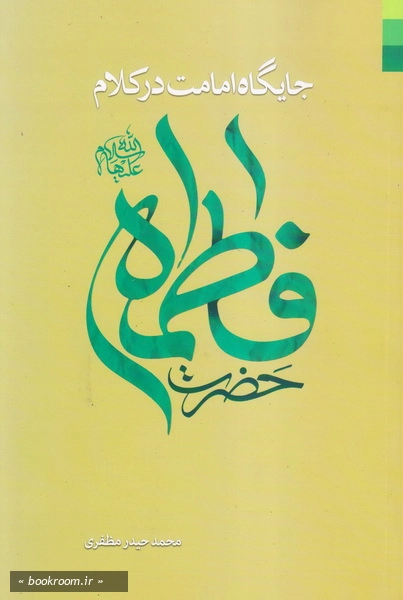 جایگاه امامت در کلام
حضرت
فاطمه
سلام الله علیها
محمد حیدر مظفری
« bookroom.ir »